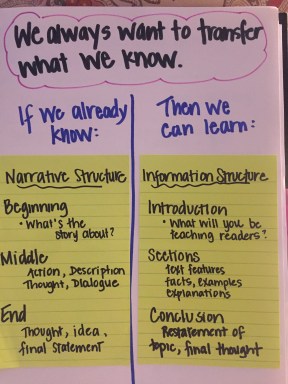 We always want to transfer
what we know.
If we already
know:
Narrative Structure
Beginning
• What's the
story about?
Middle
Action, Description
Thought, Dialogue
End
Thought, idea,
final statement
Then we
can learn:
Information Structure
Introduction
• What will you be
teaching readers?
Sections
text features
facts, examples
explanations
Conclusion
Restatement of
topic, final thought